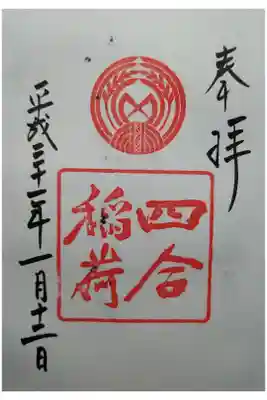 奉拝
四合
稲荷
平成三十一年一月十三日